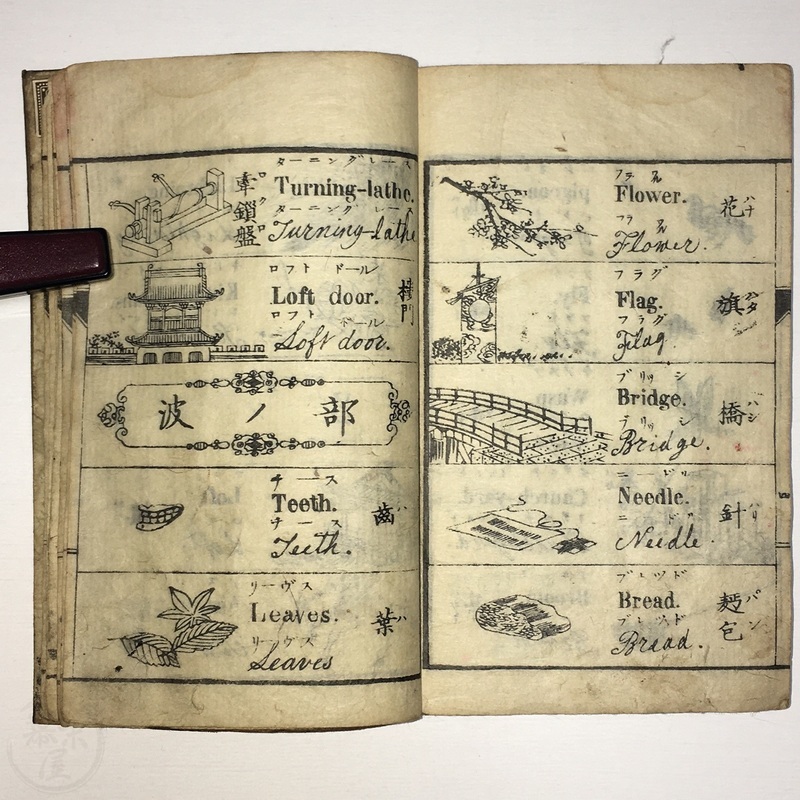 ターニングレース
Turning-lathe.
ターニング レー
Turning-lathe
牽鎖盤
ロクロ
ロフト ドール
Loft door.
ロフト ドール
Loft door.
樓門
波ノ部
チース
Teeth.
チース
Teeth.
齒
ハ
リーヴス
Leaves.
リーヴス
Leaves
葉
ハ
Flower.
Flower.
花
ハナ
フラグ
Flag.
フラグ
Flag.
旗
ハタ
ブリッジ
Bridge.
Bridge.
橋
ハシ
ニードル
Needle.
ニードル
Needle.
針
ハリ
Bread.
Bread.
麪包
パン